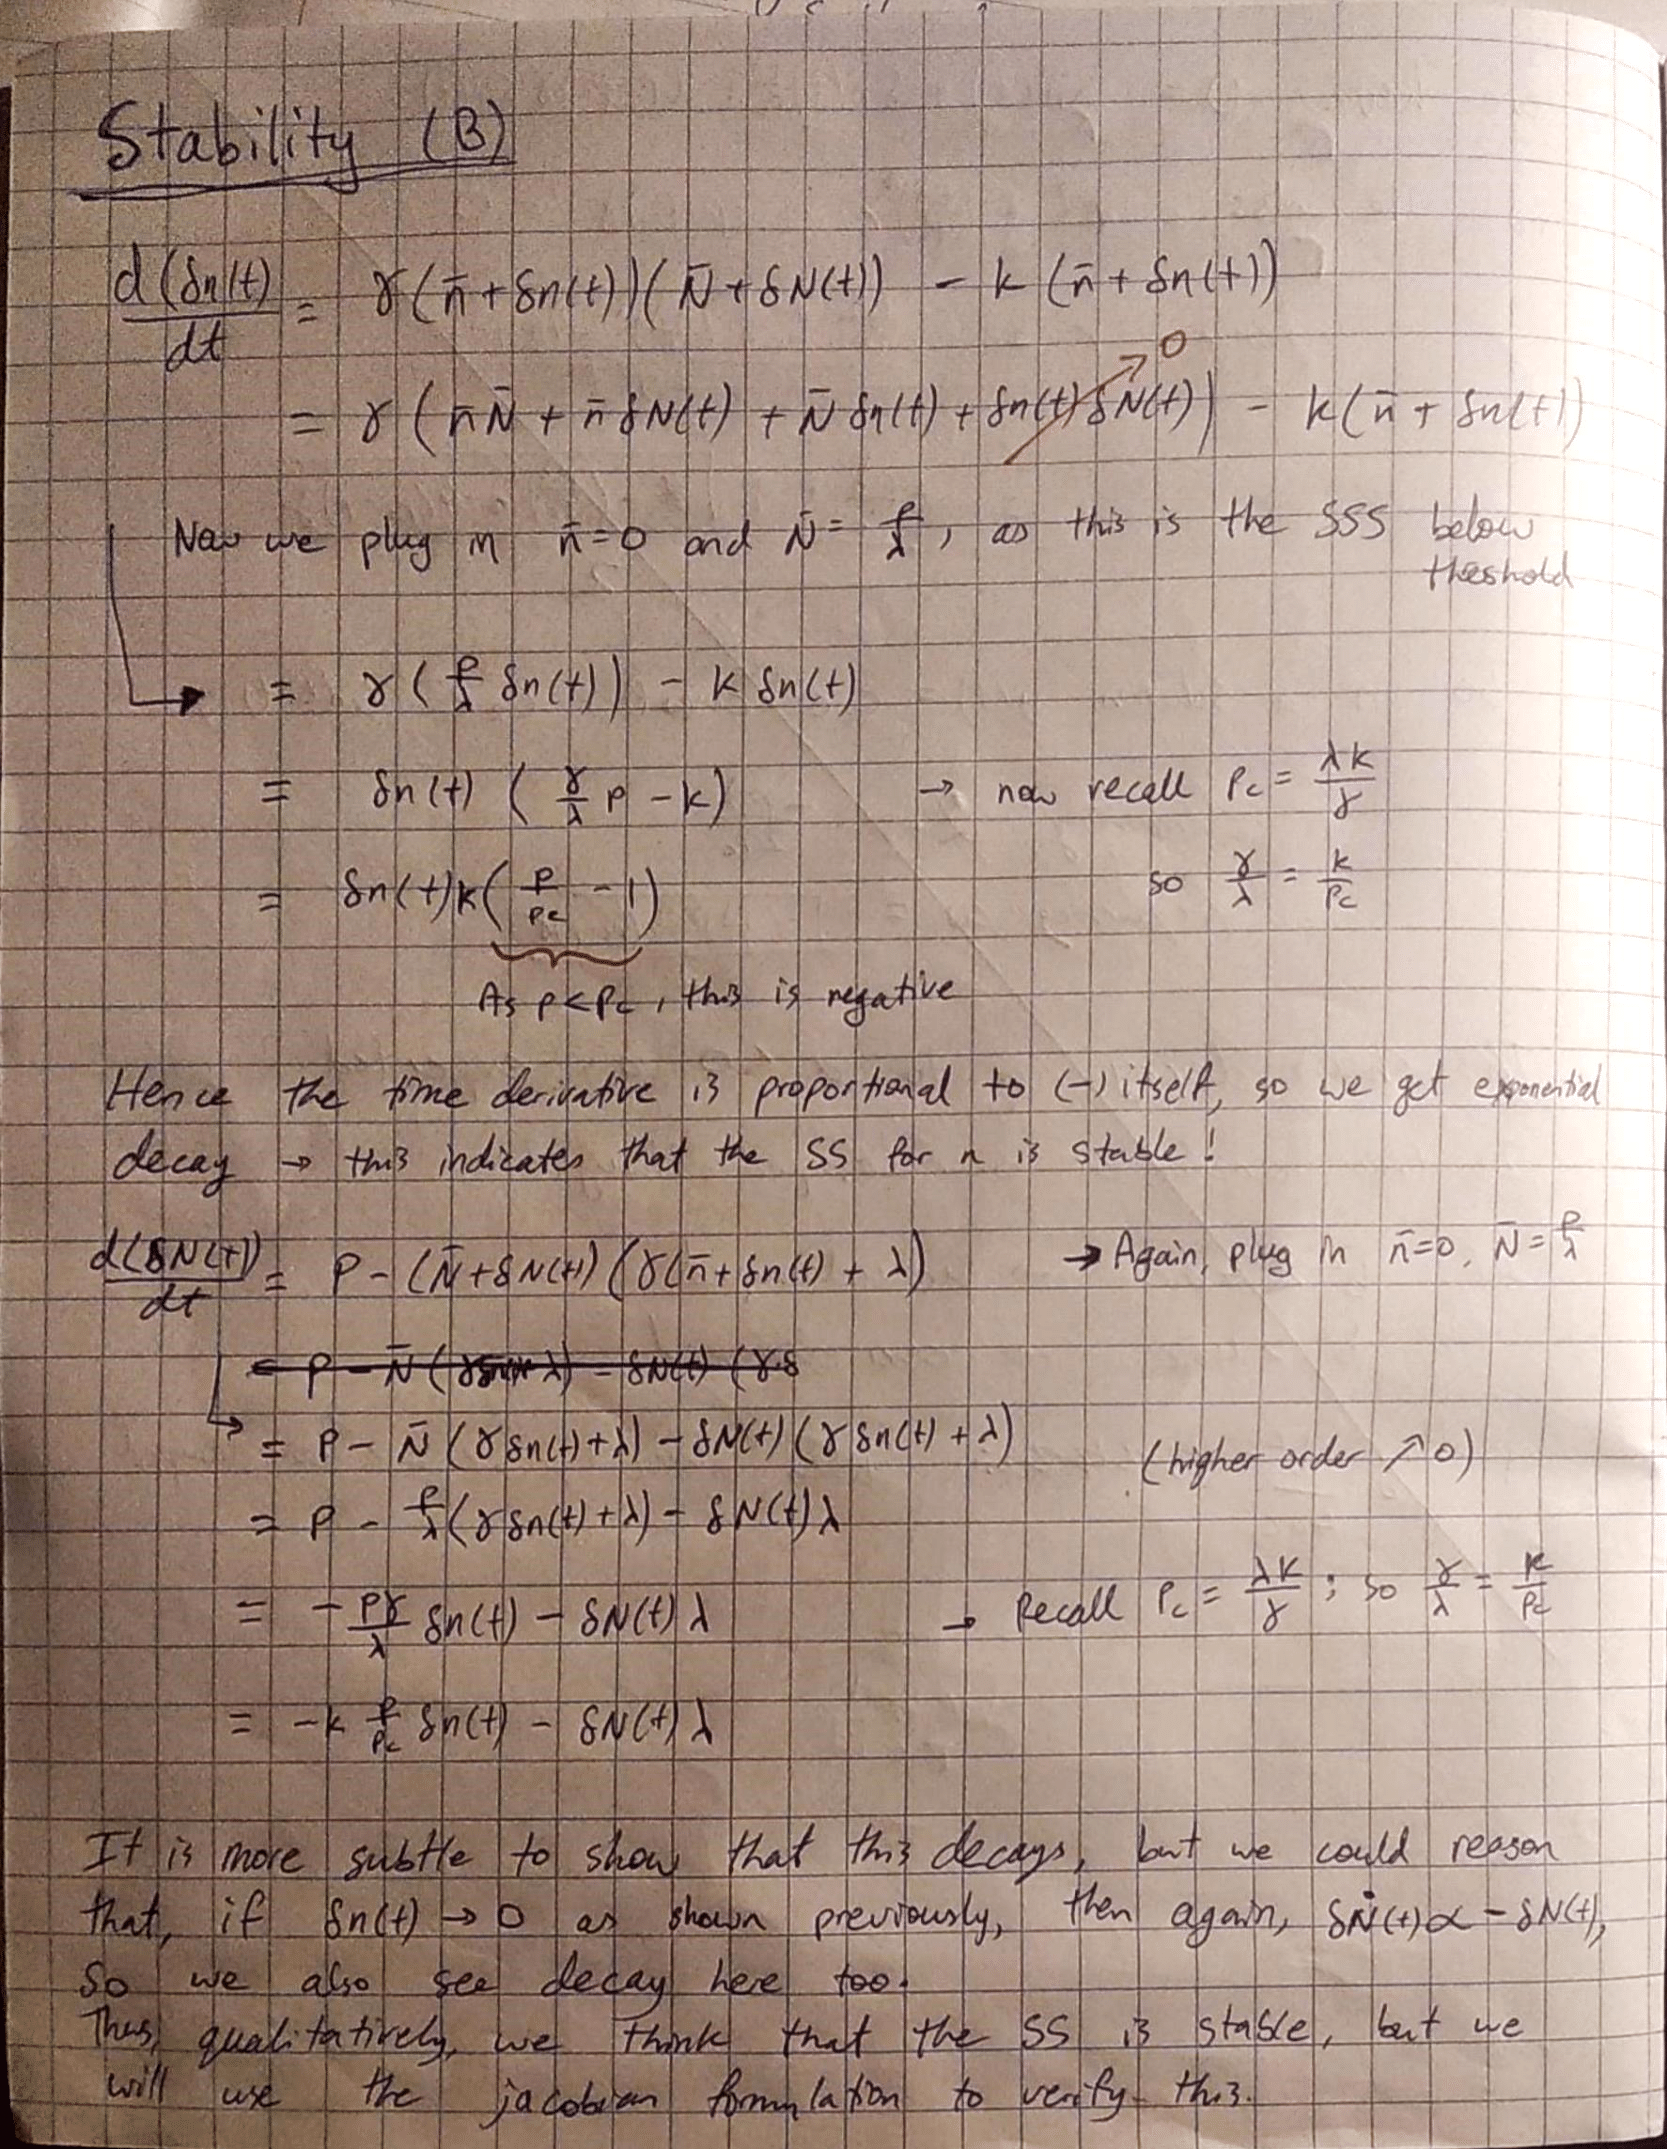 Stability (B)
d(δn(t) / dt = γ(n̄ + δn(t))(N̄ + δN(t)) - k (n̄ + δn(t))
= γ(n̄N̄ + n̄ δN(t) + N̄ δn(t) + δn(t) δN(t)) - k(n̄ + δn(t)) ↗ 0
Now we plug in n̄=0 and N̄ = p/λ, as this is the SSS below
theshold
= γ(p/λ δn(t)) - k δn(t)
= δn(t) (γ/λ p - k) → now recall Pc = λk/γ
= δn(t)k(p/pc - 1) so γ/λ = k/Pc
As p<Pc, this is negative
Hence the time derivative is proportional to (-) itself, so we get exponential
decay → this indicates that the SS for n is stable!
d(δN(t)) / dt = P - (N̄+δN(t)) (γ(n̄+δn(t) + λ) → Again, plug in n̄=0, N̄ = p/λ
= P - N̄ (γδn(t)+λ) - δN(t) (γ δ
= P - N̄ (γ δn(t)+λ) - δN(t) (γ δn(t) + λ) (higher order ↗ 0)
= P - p/λ (γ δn(t)+λ) - δN(t) λ
= - pγ/λ δn(t) - δN(t) λ → Recall Pc = λk/γ ; so γ/λ = k/Pc
= -k p/Pc δn(t) - δN(t) λ
It is more subtle to show that this decays, but we could reason
that, if δn(t) → 0 as shown previously, then again, δṄ(t) ∝ - δN(t),
so we also see decay here too.
Thus, qualitatively, we think that the SS is stable, but we
will use the jacobian formulation to verify this.